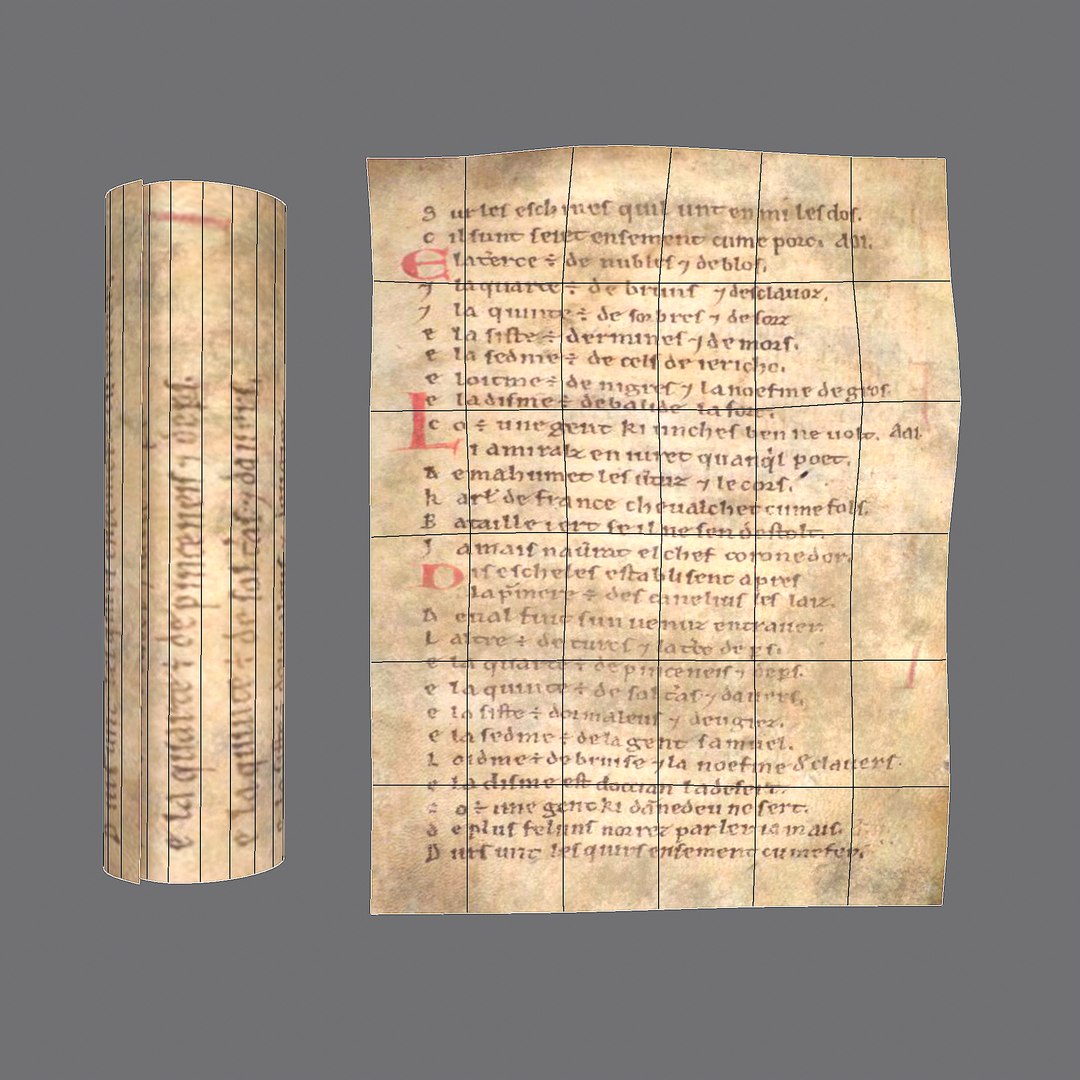 S ur les eschines quil unt en mi les dos.
C il sunt seiet ensement cume porc. Aoi.
E la terce ÷ de nubles ⁊ de blos.
⁊ la quarte ÷ de bruns ⁊ desclavoz.
⁊ la quinte ÷ de sorbres ⁊ de sorz
e la siste ÷ dermines ⁊ de mors.
e la sedme ÷ de cels de iericho.
e loitme ÷ de nigres ⁊ la noesme de gros
e la disme ÷ de balide la fort.
c o ÷ une gent ki unches ben ne volt. Aoi.
L i amiralz en iuret quanql poet.
D e mahumet les uertuz ⁊ le cors.
K arl de france chevalchet cume fols.
B ataille iert se il ne sen destolt.
J amais naurat el chef corone dor.
D is escheles establisent apres
La pimere ÷ des canelius les laiz.
D e val fuit sun venuz en traver.
L altre ÷ de turcs ⁊ la terce de ps.
e la quarte ÷ de pinceneis ⁊ de ps.
e la quinte ÷ de soltras ⁊ davers.
e la siste ÷ dormaleus ⁊ deugiez.
e la sedme ÷ de la gent samuel.
L oidme ÷ de bruise ⁊ la noefme de clavers.
e la disme est doccian la desert.
c o ÷ une gent ki damnedeu ne sert.
d e plus feluns norrez parler iamais.
D urs unt les quirs ensement cume fer.
e la quarte ÷ de pinceneis ⁊ de ps.
e la quinte ÷ de soltras ⁊ davers,